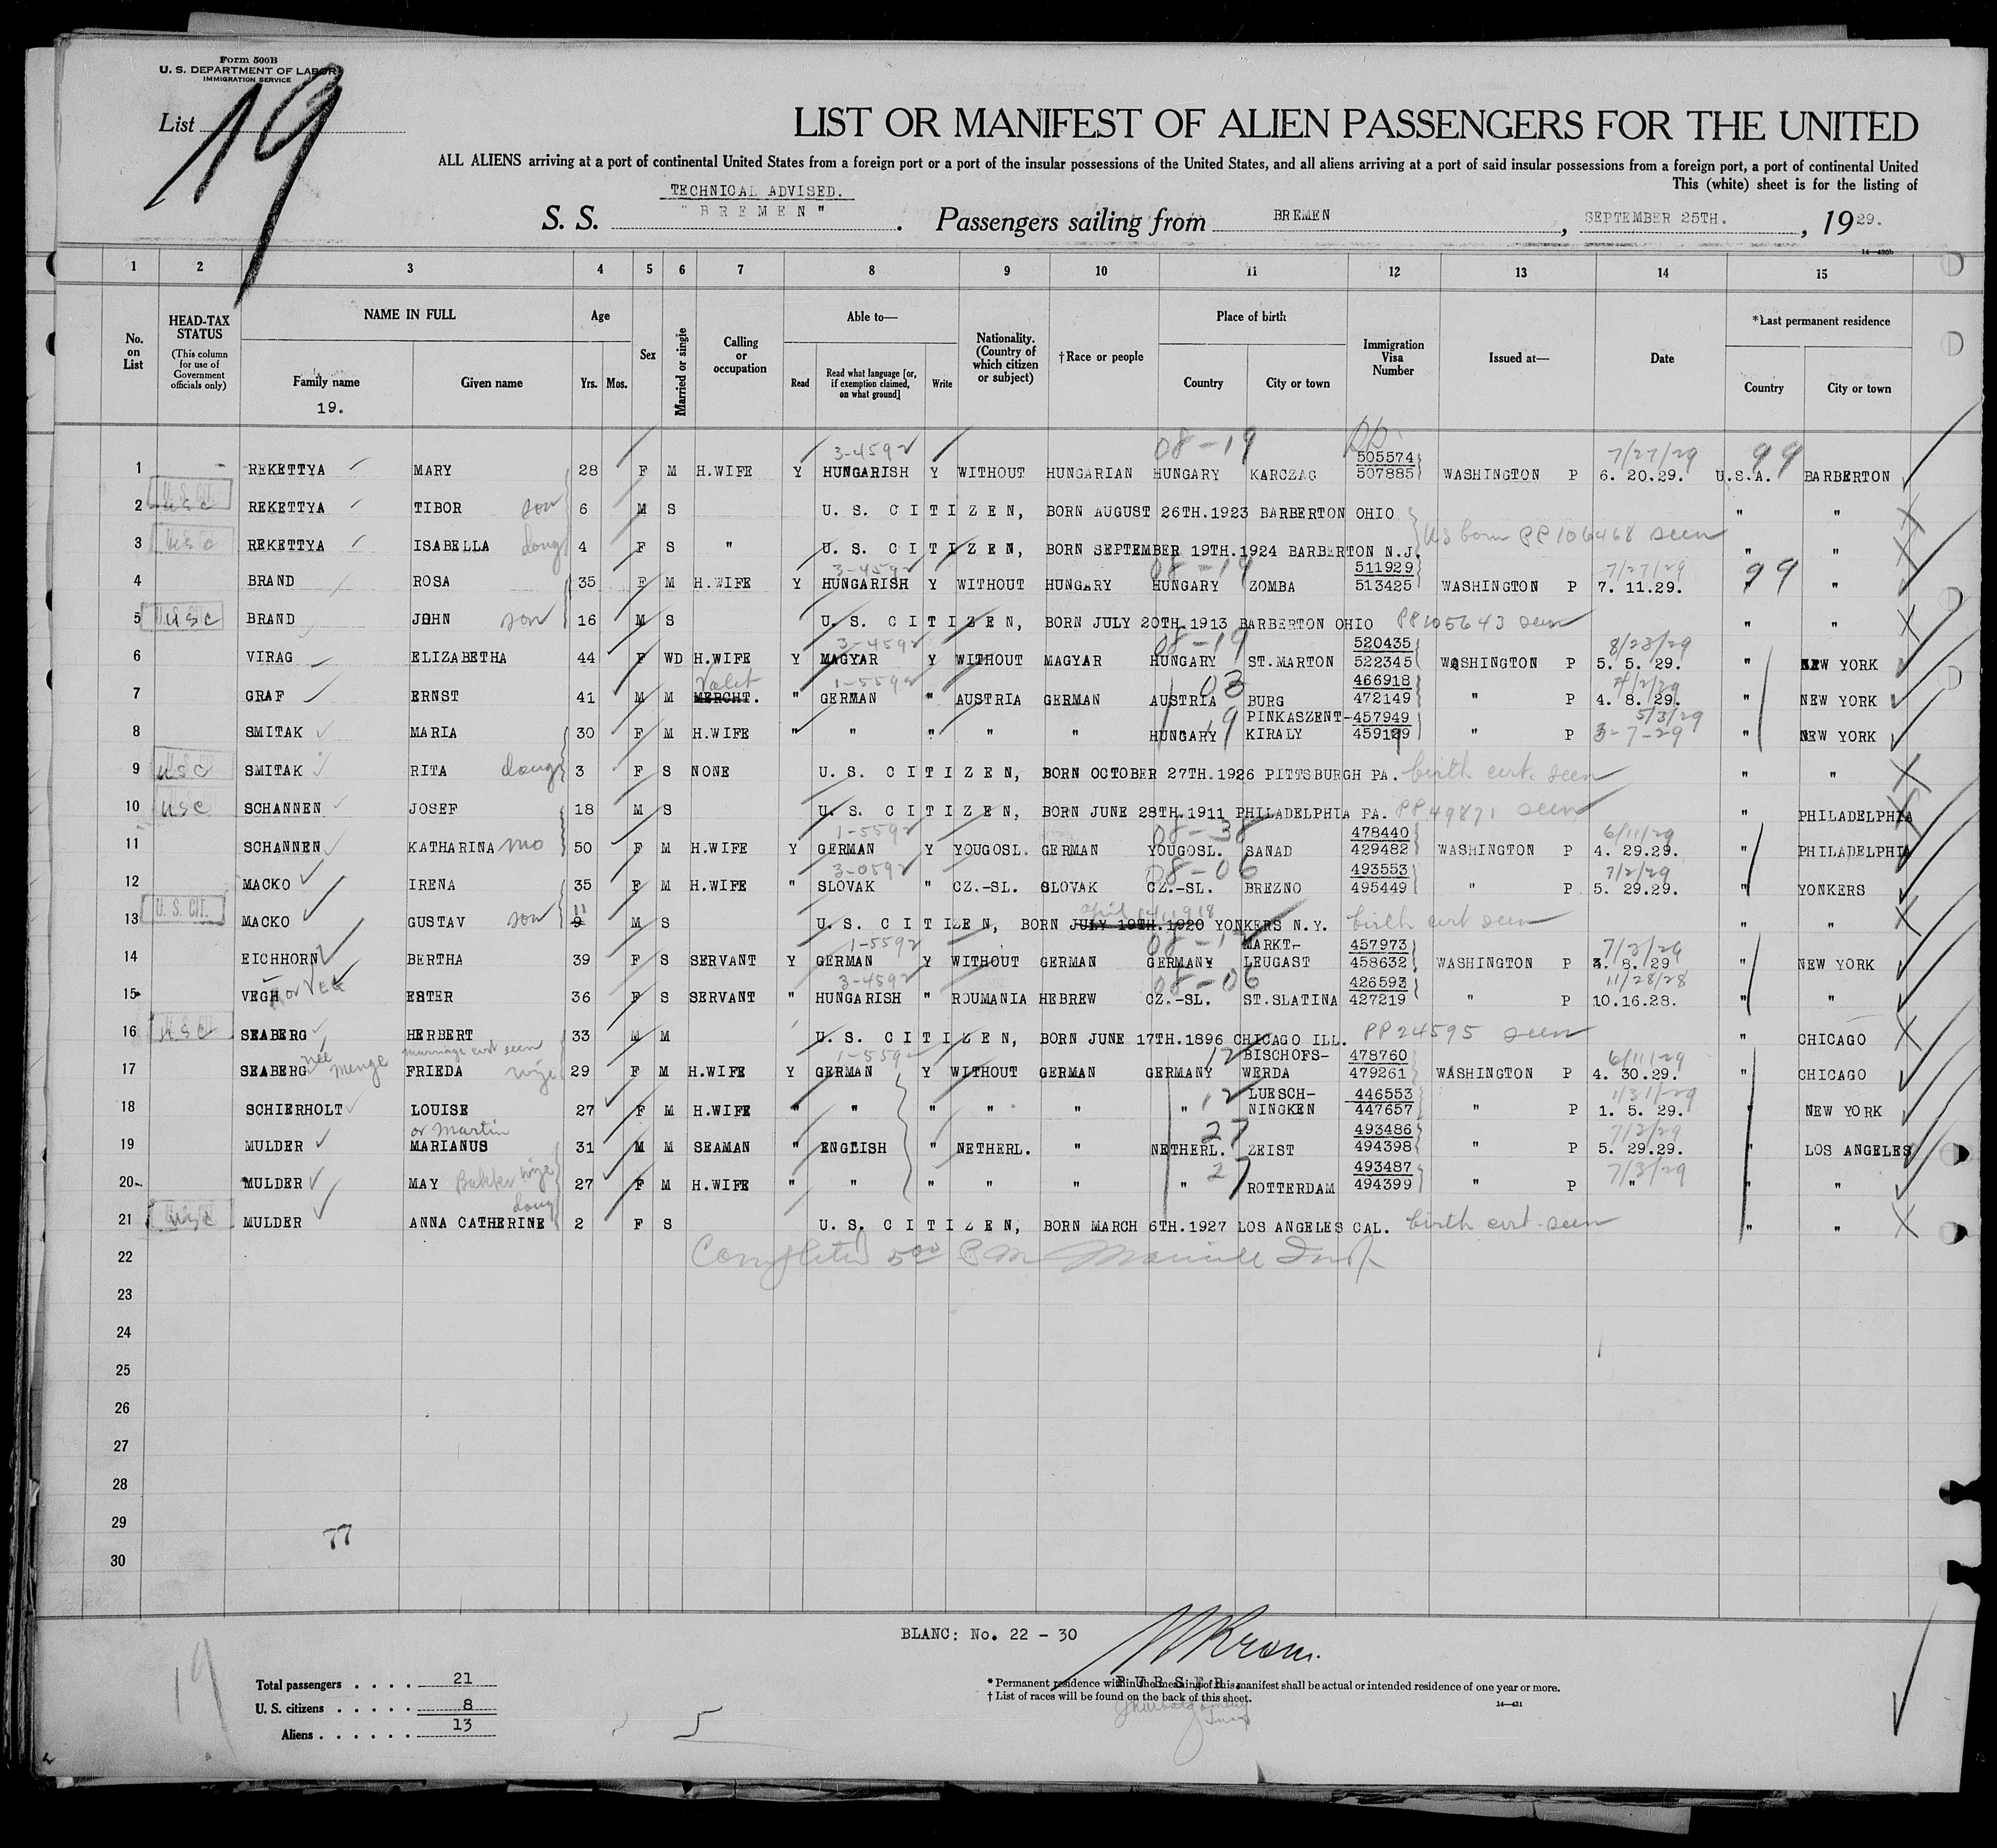 Form 500B
U. S. DEPARTMENT OF LABOR
IMMIGRATION SERVICE
List 19
LIST OR MANIFEST OF ALIEN PASSENGERS FOR THE UNITED
ALL ALIENS arriving at a port of continental United States from a foreign port or a port of the insular possessions of the United States, and all aliens arriving at a port of said insular possessions from a foreign port, a port of continental United
This (white) sheet is for the listing of
TECHNICAL ADVISED.
S. S. "BREMEN". Passengers sailing from BREMEN, SEPTEMBER 25TH., 1929.
14-430b
1 2 3 4 5 6 7 8 9 10 11 12 13 14 15
No. on List HEAD-TAX STATUS (This column for use of Government officials only) NAME IN FULL Family name Given name Age Yrs. Mos. Sex Married or single Calling or occupation Able to— Read Read what language [or, if exemption claimed, on what ground] Write Nationality. (Country of which citizen or subject) †Race or people Place of birth Country City or town Immigration Visa Number Issued at— Date *Last permanent residence Country City or town
19.
3-4592 08-19 PP. 505574 7/27/29 99
1 REKETTYA MARY 28 F M H.WIFE Y HUNGARISH Y WITHOUT HUNGARIAN HUNGARY KARCZAG 507885 WASHINGTON P 6. 20.29. U.S.A. BARBERTON
2 U.S. CIT. usc REKETTYA TIBOR son 6 M S U. S. CITIZEN, BORN AUGUST 26TH.1923 BARBERTON OHIO " "
US born PP106468 seen
3 usc REKETTYA ISABELLA daug 4 F S " U. S. CITIZEN, BORN SEPTEMBER 19TH.1924 BARBERTON N.J. " "
3-4592 08-19 511929 7/27/29 99
4 BRAND ROSA 35 F M H.WIFE Y HUNGARISH Y WITHOUT HUNGARY HUNGARY ZOMBA 513425 WASHINGTON P 7. 11.29. " "
5 U.S. CIT. usc BRAND JOHN son 16 M S U. S. CITIZEN, BORN JULY 20TH.1913 BARBERTON OHIO PP105643 seen " "
3-4592 08-19 520435 8/23/29
6 VIRAG ELIZABETHA 44 F WD H.WIFE Y MAGYAR Y WITHOUT MAGYAR HUNGARY ST.MARTON 522345 WASHINGTON P 5. 5. 29. " NEW YORK
Valet 1-5592 03 466918 4/2/29
7 GRAF ERNST 41 M M MERCHT. " GERMAN " AUSTRIA GERMAN AUSTRIA BURG 472149 " P 4. 8. 29. " NEW YORK
19 PINKASZENT- 457949 5/3/29
8 SMITAK MARIA 30 F M H.WIFE " " " " " HUNGARY KIRALY 459129 " P 3-7-29 " NEW YORK
9 usc SMITAK RITA daug 3 F S NONE U. S. CITIZEN, BORN OCTOBER 27TH.1926 PITTSBURGH PA. birth cert. seen " "
10 usc SCHANNEN JOSEF 18 M S U. S. CITIZEN, BORN JUNE 28TH.1911 PHILADELPHIA PA. PP49871 seen " PHILADELPHIA
1-5592 08-38 478440 6/11/29
11 SCHANNEN KATHARINA mo 50 F M H.WIFE Y GERMAN Y YOUGOSL. GERMAN YOUGOSL. SANAD 429482 WASHINGTON P 4. 29.29. " PHILADELPHIA
3-0592 08-06 493553 7/2/29
12 MACKO IRENA 35 F M H.WIFE " SLOVAK " CZ.-SL. SLOVAK CZ.-SL. BREZNO 495449 " P 5. 29.29. " YONKERS
11 april 14 1918
13 U. S. CIT. MACKO GUSTAV son 9 M S U. S. CITIZEN, BORN JULY 19TH.1920 YONKERS N.Y. birth cert seen " "
1-5592 08-12 MARKT- 457973 7/3/26
14 EICHHORN BERTHA 39 F S SERVANT Y GERMAN Y WITHOUT GERMAN GERMANY LEUGAST 458632 WASHINGTON P 3. 8. 29 " NEW YORK
3-4592 08-06 426593 11/28/28
15 VEGH or VEG ESTER 36 F S SERVANT " HUNGARISH " ROUMANIA HEBREW CZ.-SL. ST.SLATINA 427219 " P 10.16.28. " "
16 usc SEABERG HERBERT 33 M M U. S. CITIZEN, BORN JUNE 17TH.1896 CHICAGO ILL. PP24595 seen " CHICAGO
nee Menge marriage cert seen 1-5592 12 BISCHOFS- 478760 6/11/29
17 SEABERG FRIEDA wife 29 F M H.WIFE Y GERMAN Y WITHOUT GERMAN GERMANY WERDA 479261 WASHINGTON P 4. 30.29. " CHICAGO
12 LUESCH- 446553 1/31/29
18 SCHIERHOLT LOUISE 27 F M H.WIFE " " " " " " NINGKEN 447657 " P 1. 5. 29. " NEW YORK
or Martin 27 493486 7/3/29
19 MULDER MARIANUS 31 M M SEAMAN " ENGLISH " NETHERL. " NETHERL. ZEIST 494398 " P 5. 29.29. " LOS ANGELES
27 493487 7/3/29
20 MULDER MAY Bakker wife 27 F M H.WIFE " " " " " " ROTTERDAM 494399 " P " " "
daug
21 usc MULDER ANNA CATHERINE 2 F S U. S. CITIZEN, BORN MARCH 6TH.1927 LOS ANGELES CAL. birth cert. seen " "
22 Completed 500 PM Insp
23
24
25
26
27
28
29
77
30
BLANC: No. 22 - 30
19
Total passengers . . . . 21
U. S. citizens . . . . . 8
Aliens . . . . . . 13
5
PURSER.
* Permanent residence within the meaning of this manifest shall be actual or intended residence of one year or more.
† List of races will be found on the back of this sheet.
14-431